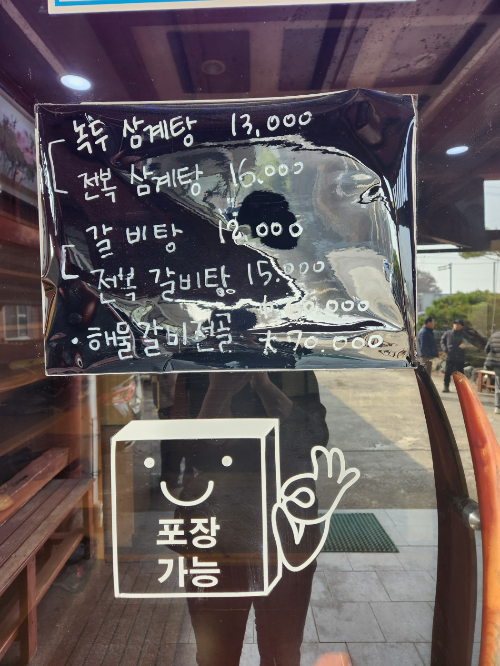 녹두 삼계탕 13,000
전복 삼계탕 16.000
갈비탕 12.000
전복 갈비탕 15.000
·해물갈비전골 大 70.000
포장
가능